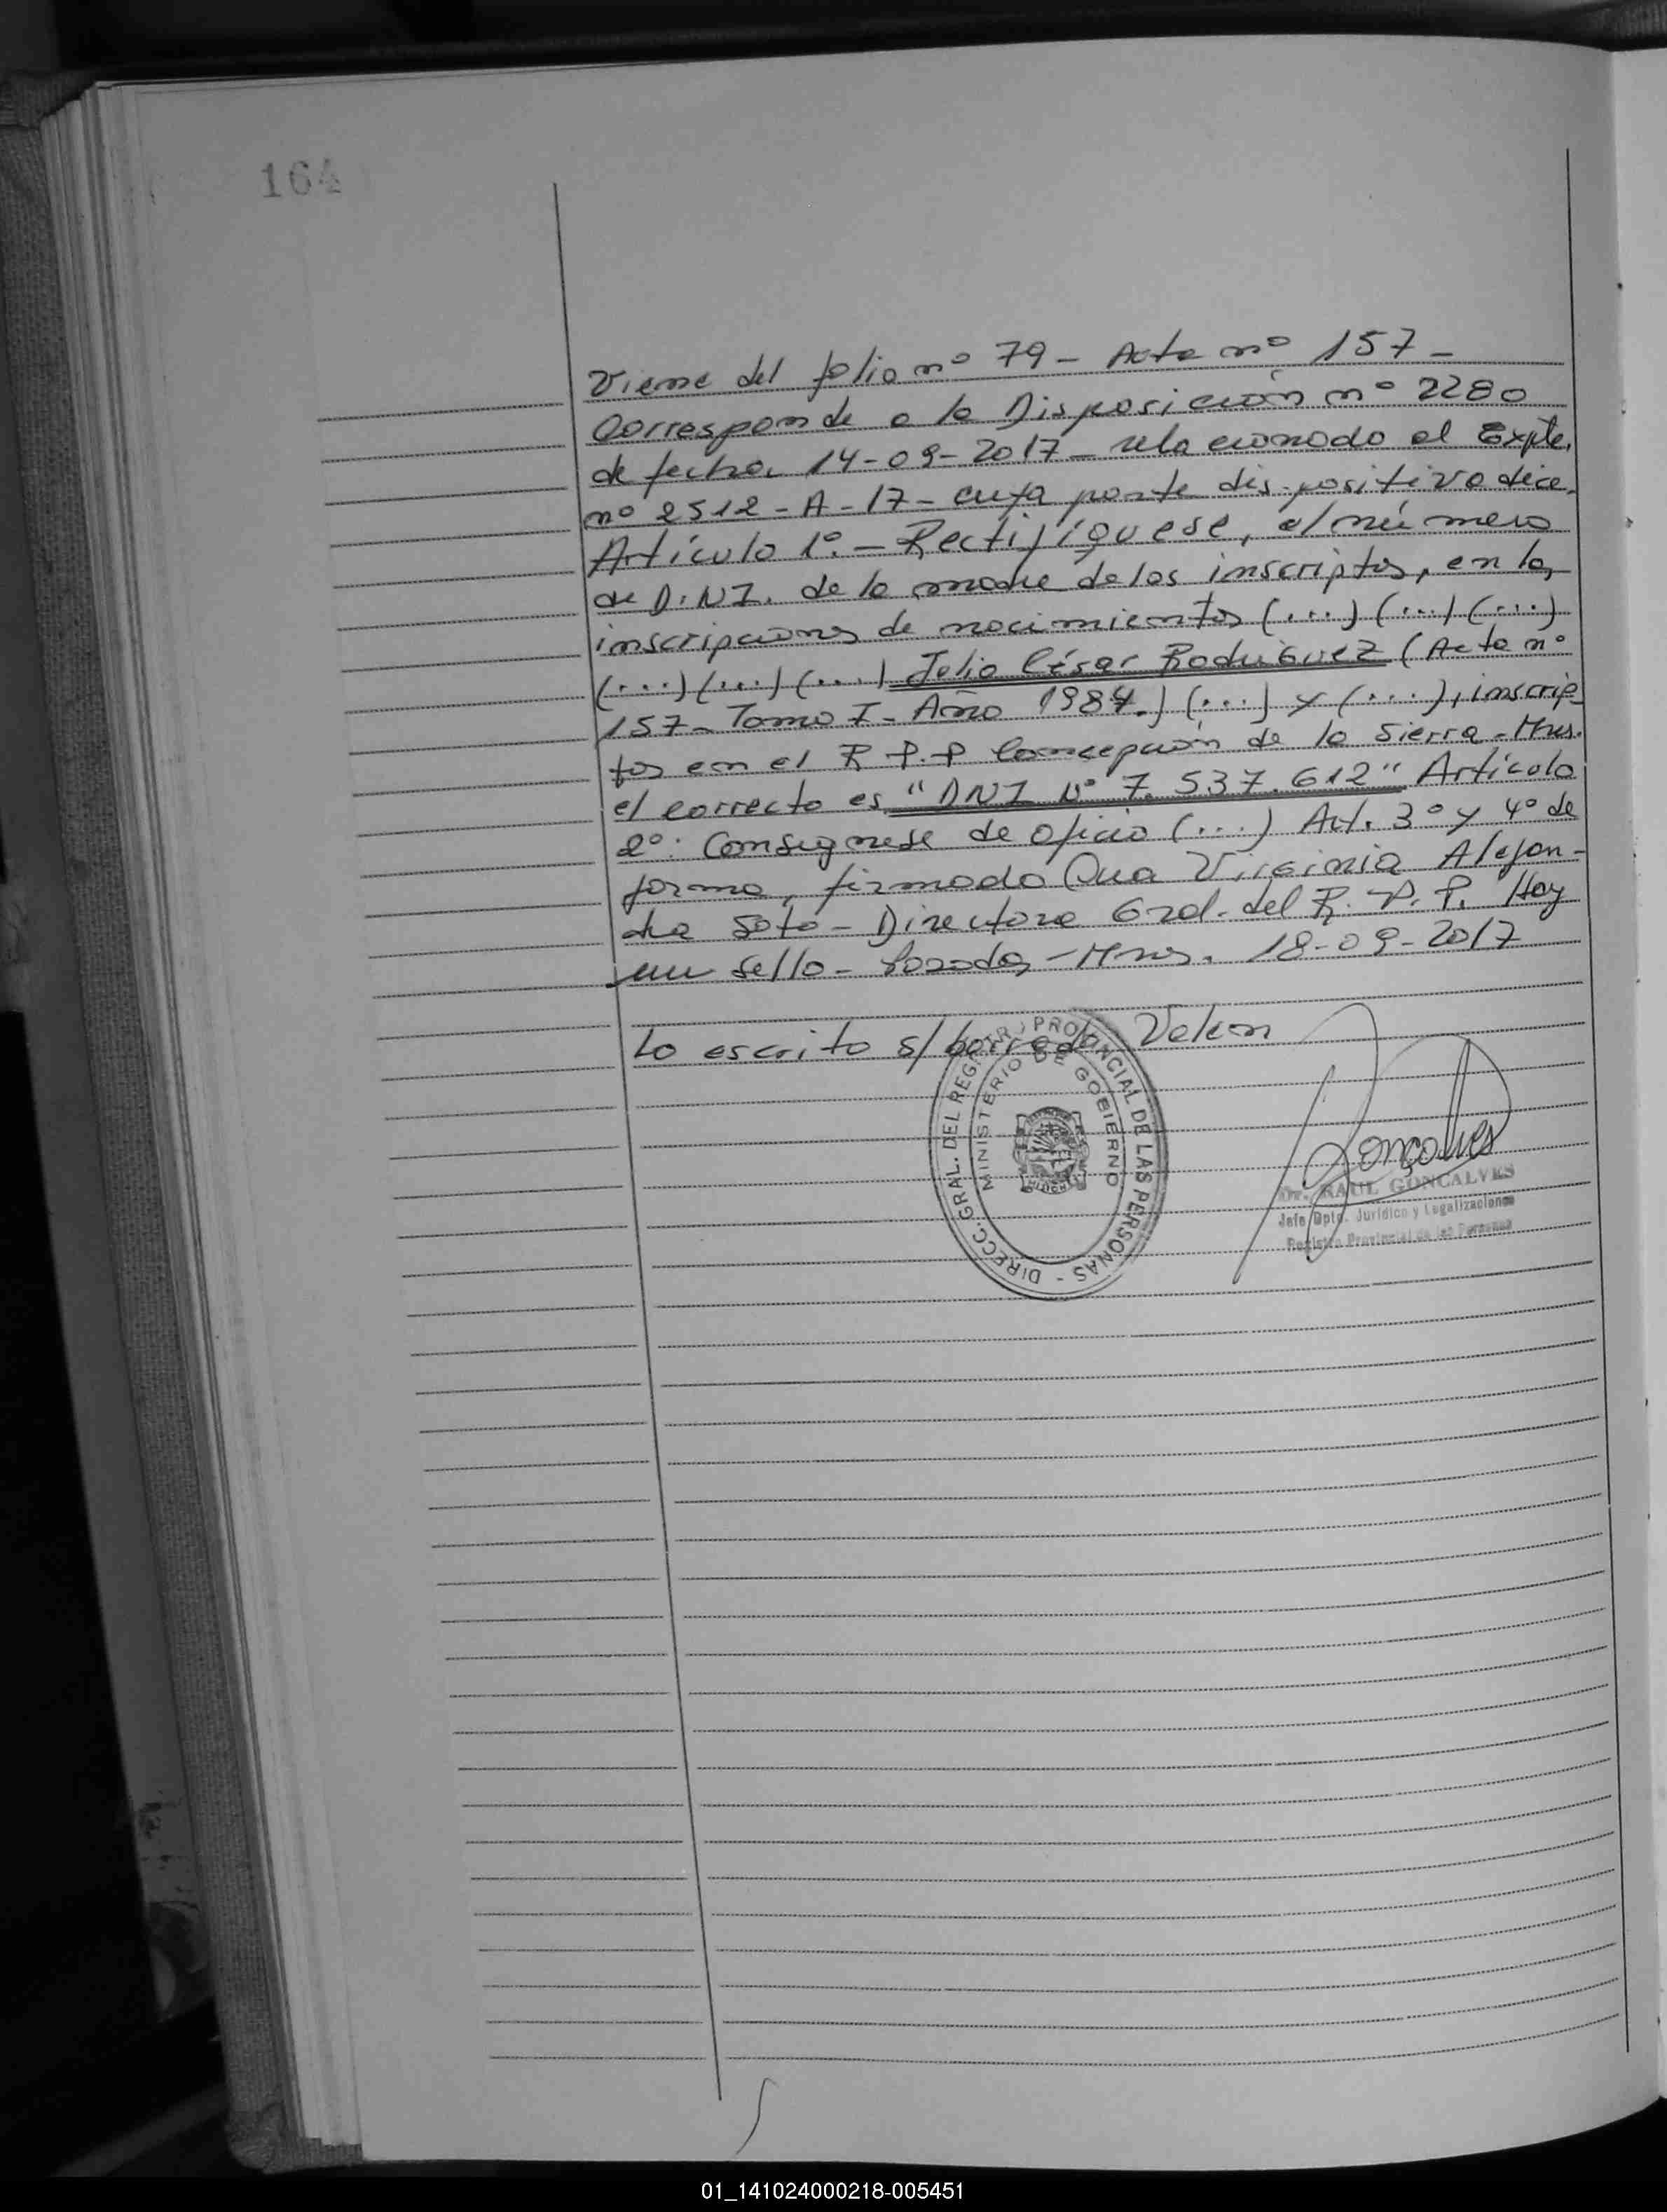 164
Viene del folio nº 79 - Acta nº 157 -
Corresponde a la Disposición nº 2280
de fecha 14-09-2017 - relacionado al Expte.
nº 2512 - A - 17 - cuya parte dispositiva dice.
Artículo 1º. - Rectifíquese, el número
de D.N.I. de la madre de los inscriptos, en las
inscripciones de nacimientos (...) (...) (...)
(...) (...) (...) Julio César Rodriguez (Acta nº
157 - Tomo I - Año 1984.) (...) y (...), inscrip-
tos en el R.P.P Concepción de la Sierra - Mnes.
el correcto es "DNI Nº 7.537.612" Artículo
2º: Consignese de oficio (...) Art. 3º y 4º de
forma, firmado Virginia Alejan-
dra Soto - Directora Gral. del R.P.P. Hay
un sello - Posadas - Mnes. 18-09-2017
Lo escrito s/borrado Valen
DIRECC. GRAL. DEL REGISTRO PROVINCIAL DE LAS PERSONAS -
MINISTERIO DE GOBIERNO
MISIONES
Goncalves
Dr. RAUL GONCALVES
Jefe Dpto. Jurídico y Legalizaciones
Registro Provincial de las Personas
01_141024000218-005451